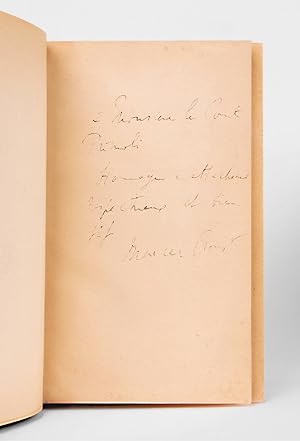 à Monsieur le Comte
Primoli
Hommage attachement
respectueux et bien
Marcel Proust